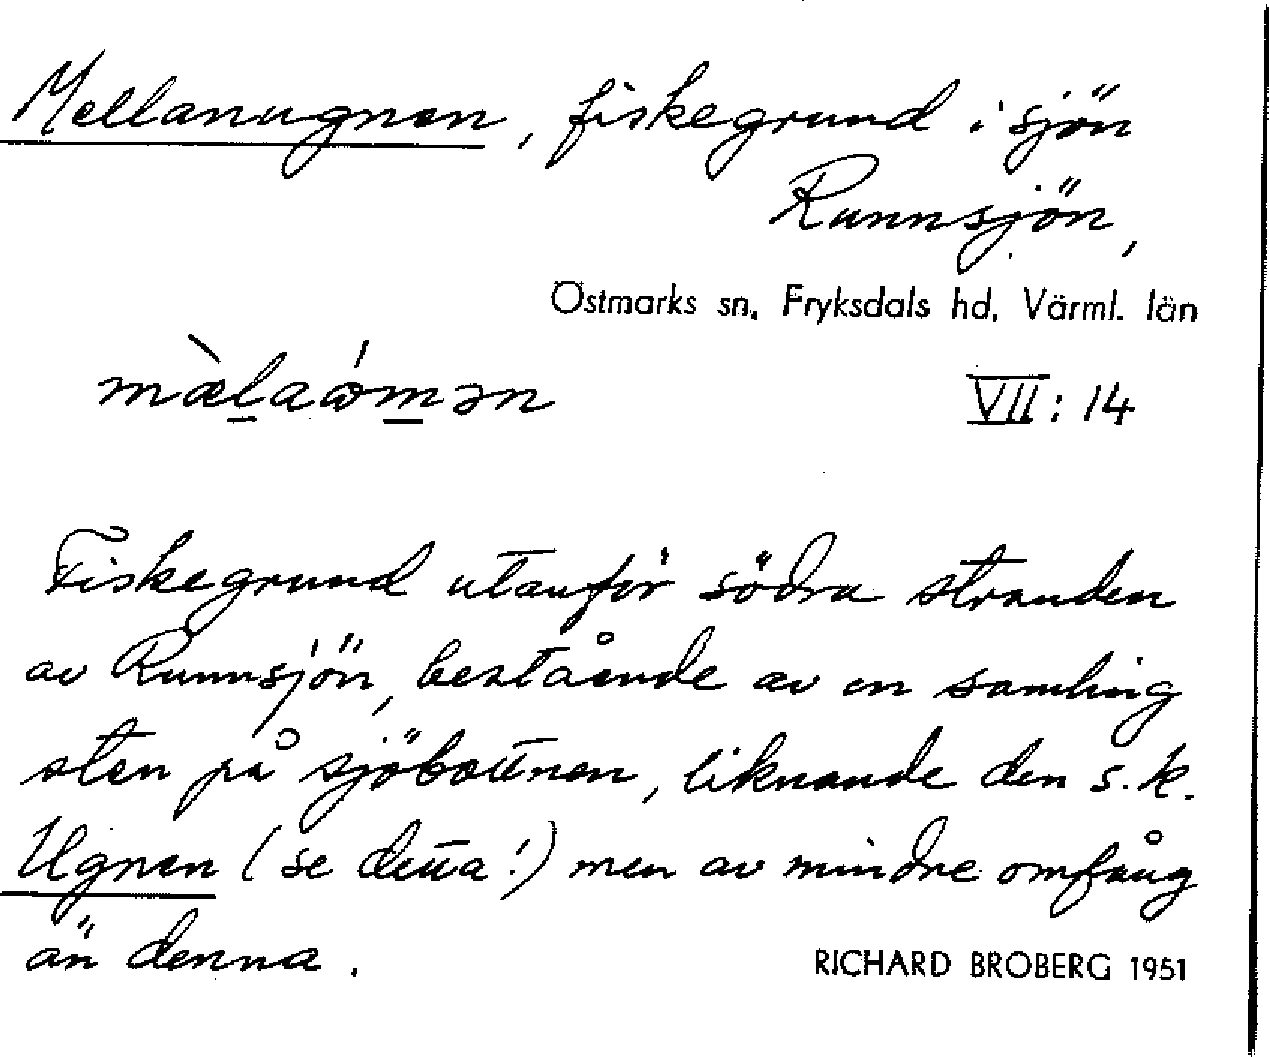 Mellanugnen, fiskegrund i sjön
Runnsjön,
Östmarks sn, Fryksdals hd, Värml. län
mæ̀l̠aώm̠ən
VII: 14
Fiskegrund utanför södra stranden
av Runnsjön, bestående av en samling
sten på sjöbottnen, liknande den s.k.
Ugnen (se detta!) men av mindre omfång
än denna.
RICHARD BROBERG 1951